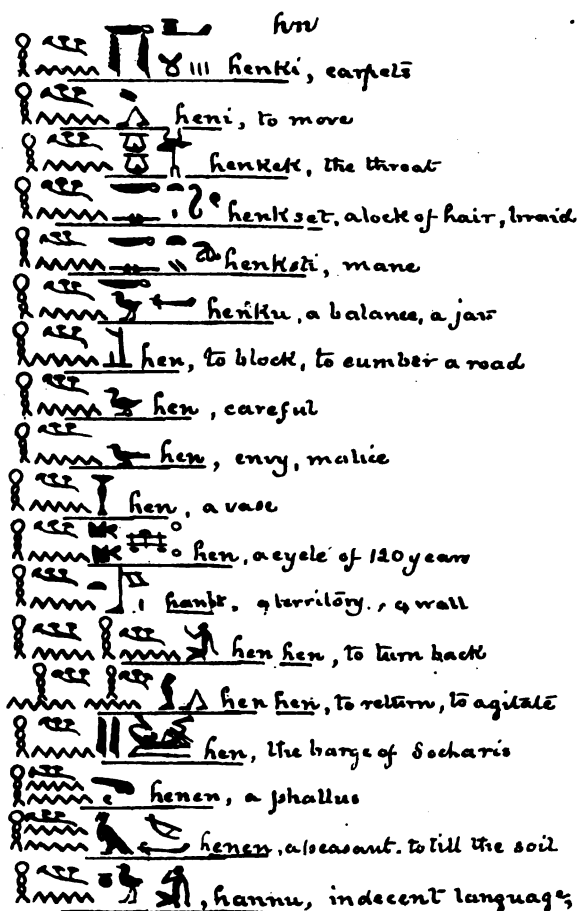 hn
henki, carpets
heni, to move
henkek, the throat
henkset, a lock of hair, braid
henksti, mane
henku, a balance, a jar
hen, to block, to cumber a road
hen, careful
hen, envy, malice
hen, a vase
hen, a cycle of 120 years
hanbt, a territory., a wall
hen hen, to turn back
hen hen, to return, to agitate
hen, the barge of Socharis
henen, a phallus
henen, a peasant. to till the soil
, hannu, indecent language,